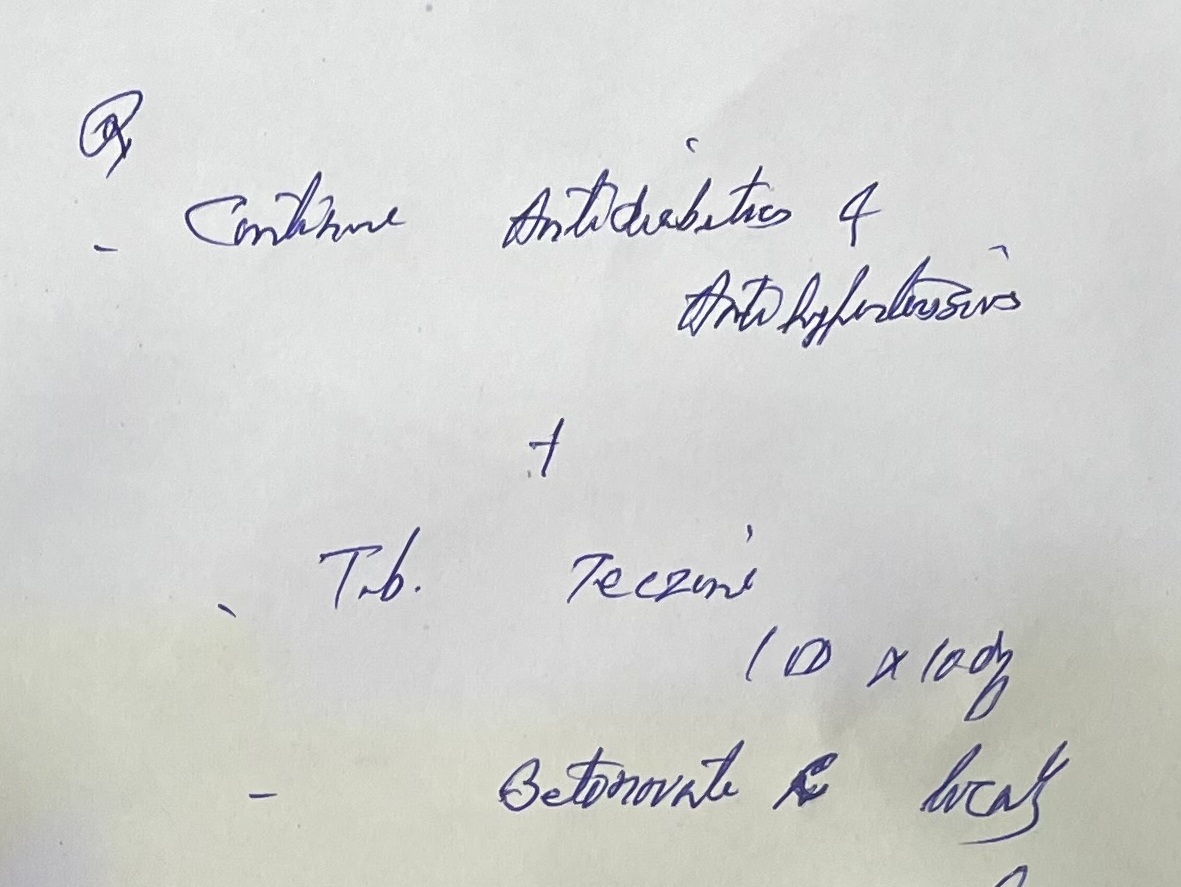 Rx
- Continue Antidiabetics &
Antihypertensives
+
- Tab. Teczine
1 OD x 10 day
- Betnovate C locally